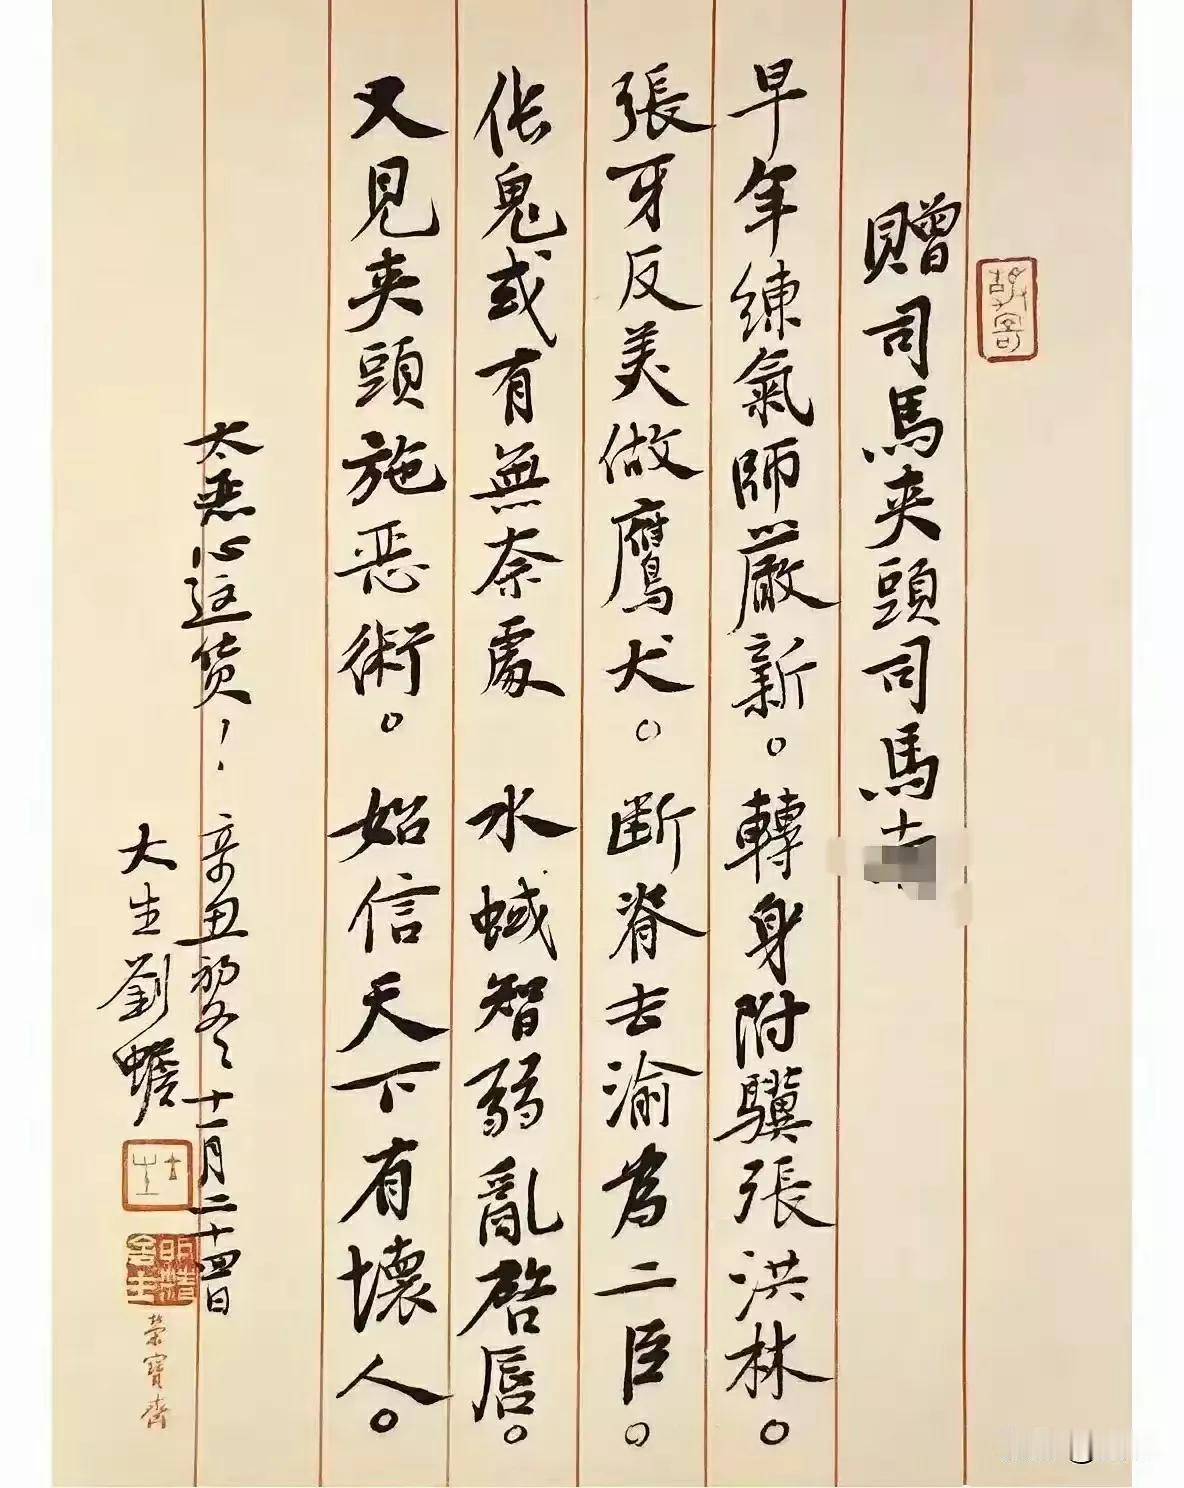 贈司馬夾頭司馬
早年練氣師嚴新。轉身附驥張洪林。
張牙反美做鷹犬。斷脊去渝為二臣。
伥鬼或有無奈處 水蜮智弱亂啓唇。
又見夾頭施惡術。始信天下有壞人。
太恶心这货！辛丑初冬十一月二十四日
大生劉蟾
榮寶齋